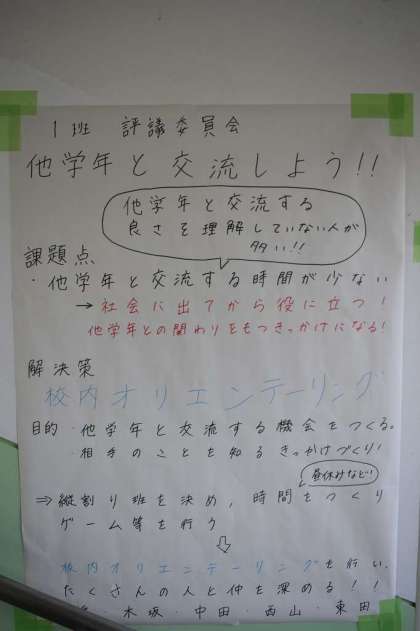 1班 評議委員会
他学年と交流しよう!!
他学年と交流する
良さを理解していない人が
多い!!
課題点
・他学年と交流する時間が少ない
→社会に出てから役に立つ!
他学年との関わりをもつきっかけになる!
解決策
校内オリエンテーリング
目的・他学年と交流する機会をつくる。
・相手のことを知るきっかけづくり!
昼休みなど!
⇒縦割り班を決め,時間をつくり
ゲーム等を行う
⇩
校内オリエンテーリングを行い,
たくさんの人と仲を深める!!
・木坂・中田・西山・東田